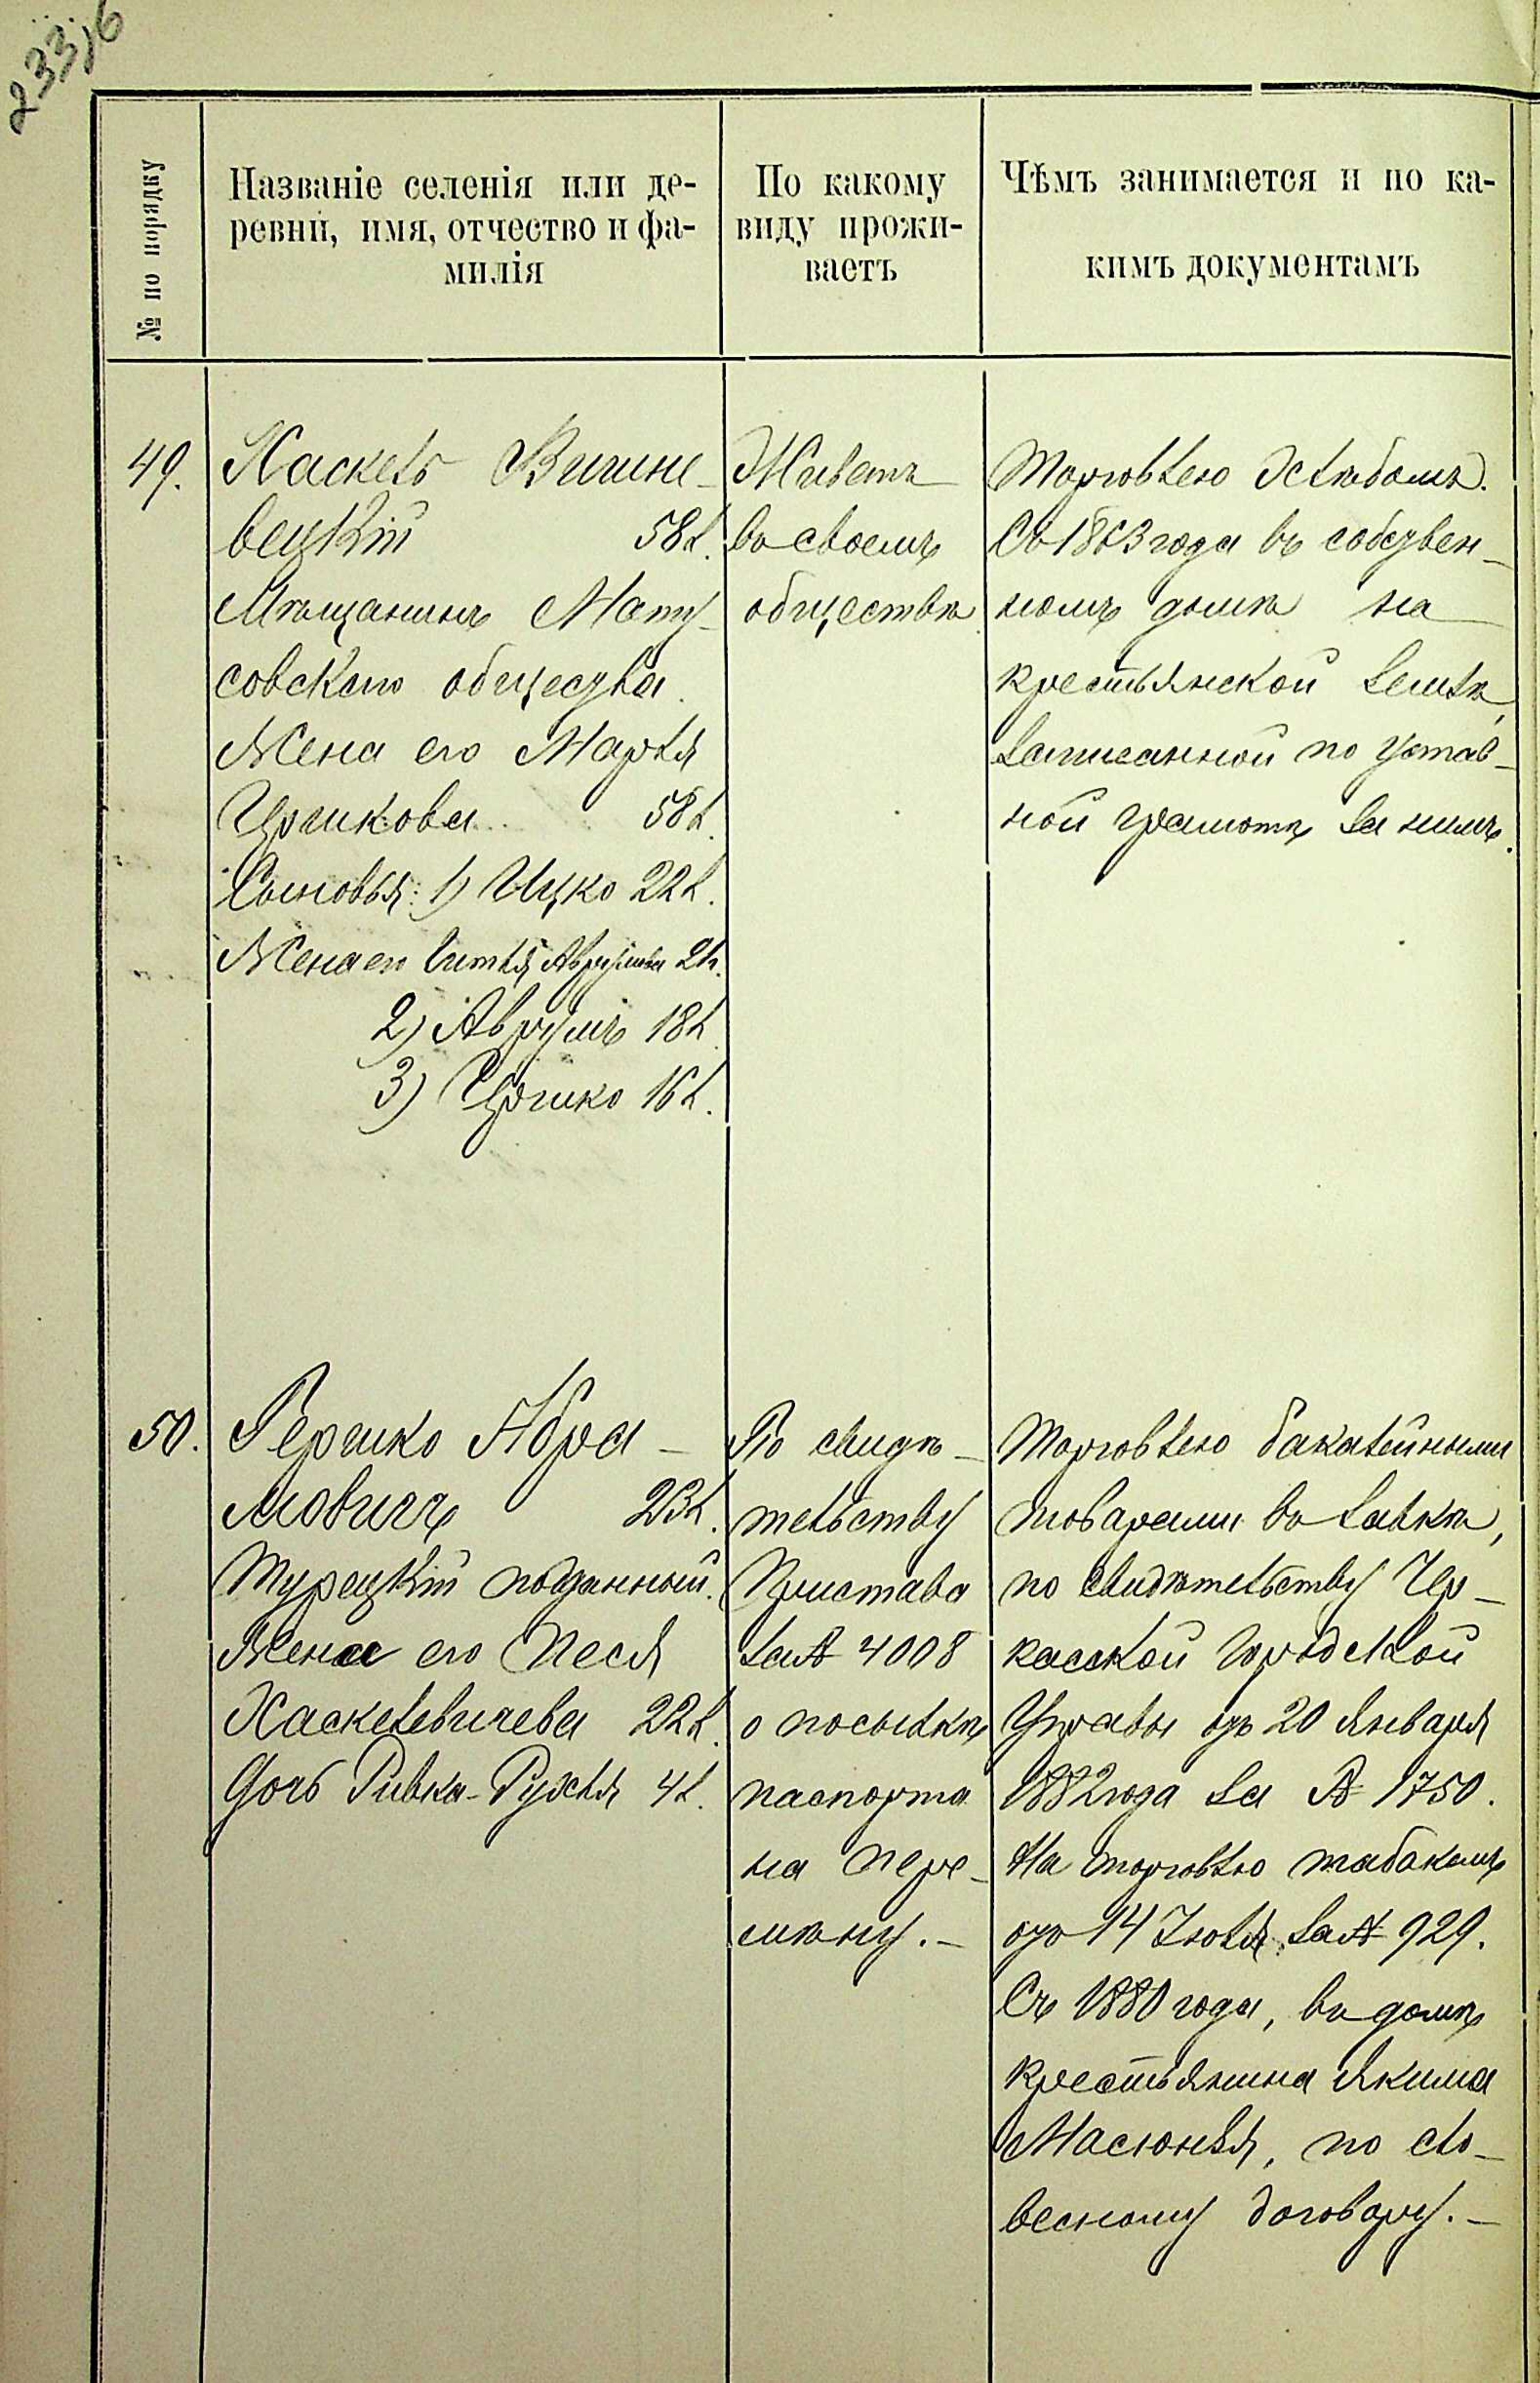 233,б
№ по порядку
Названіе селенія или де-
ревни, имя, отчество и фа-
милія
По какому
виду прожи-
ваетъ
Чѣмъ занимается и по ка-
кимъ документамъ
49.
Хаскель Вишне-
вецкій 58 л.
Мѣщанинъ Мату-
совскаго общества.
Жена его Марья
Іцикова 58 л.
Сыновья: 1) Ицко 22 л.
Жена его Аврумова 21.
2) Аврумъ 18 л.
3) 16 л.
Живетъ
въ своемъ
обществѣ
Торговлею хлѣбомъ.
Съ 1863 года въ собствен-
номъ домѣ на
крестьянской землѣ,
записанной по устав-
ной грамотѣ за нимъ.
50.
Гершко Абра-
мовичъ 23 л.
Турецкій поданный.
Жена его Песя
Хаскелевичева 22 л.
Дочь Ривка-Рухля 4 л.
По свидѣ-
тельству
Пристава
за № 4008
о посылкѣ
паспорта
на пере-
мѣну.-
Торговлею бакалейными
товарами въ лавкѣ,
по свидѣтельству Чер-
касской Городской
Управы отъ 20 Января
1882 года за № 1750.
На торговлю табакомъ
отъ 14 Іюля за № 929.
Съ 1880 года, въ домѣ
крестьянина Якима
по сло-
весному договору.-